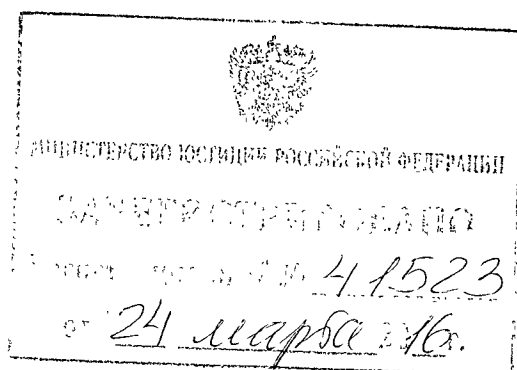 МИНИСТЕРСТВО ЮСТИЦИИ РОССИЙСКОЙ ФЕДЕРАЦИИ
ЗАРЕГИСТРИРОВАНО
Регистрационный № 41523
от 24 марта 2016г.